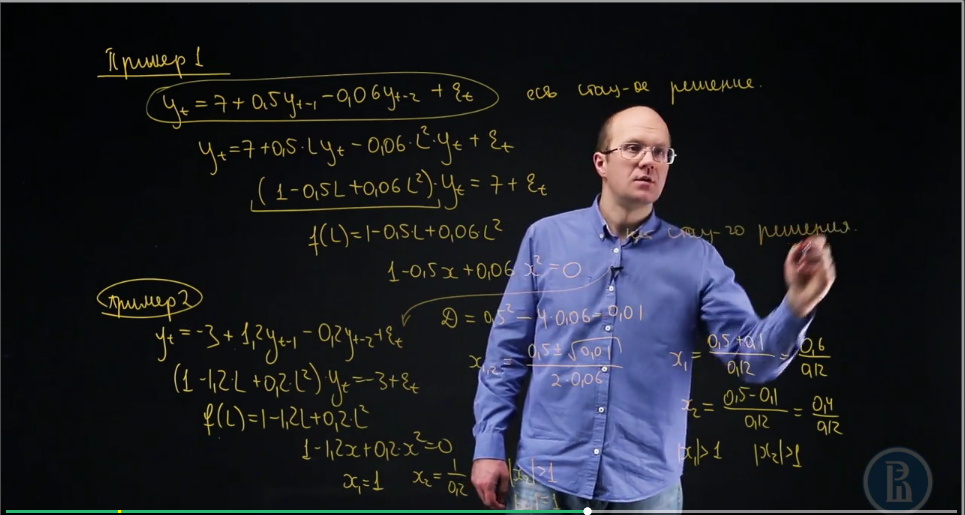 Пример 1
yₜ = 7 + 0,5yₜ₋₁ - 0,06yₜ₋₂ + εₜ
есть стац-ое решение.
yₜ = 7 + 0,5·Lyₜ - 0,06·L²·yₜ + εₜ
(1 - 0,5L + 0,06L²)·yₜ = 7 + εₜ
f(L) = 1 - 0,5L + 0,06·L²
стац-го решения.
1 - 0,5x + 0,06x² = 0
D = 0,5² - 4·0,06 = 0,01
x₁,₂ = (0,5 ± √(0,01)) / (2·0,06)
x₁ = (0,5 + 0,1) / 0,12 = 0,6 / 0,12
x₂ = (0,5 - 0,1) / 0,12 = 0,4 / 0,12
|x₁| > 1 |x₂| > 1
Пример 2
yₜ = -3 + 1,2yₜ₋₁ - 0,2yₜ₋₂ + εₜ
(1 - 1,2·L + 0,2·L²)·yₜ = -3 + εₜ
f(L) = 1 - 1,2L + 0,2·L²
1 - 1,2x + 0,2·x² = 0
x₁ = 1 x₂ = 1 / 0,2 |x₂| > 1
= 1